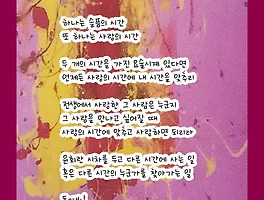 하나는 슬픔의 시간
또 하나는 사랑의 시간
두 개의 시간을 가진 요술시계 있다면
언제든 사랑의 시간에 내 시간을 맞추리
전생에서 사랑한 그 사람은 누군지
그 사람을 만나고 싶어질 때
사랑의 시간에 맞추고 사랑하면 되리라
윤회란 시차를 두고 다른 시간에 사는 일
혹은 다른 시간의 누군가를 찾아가는 일